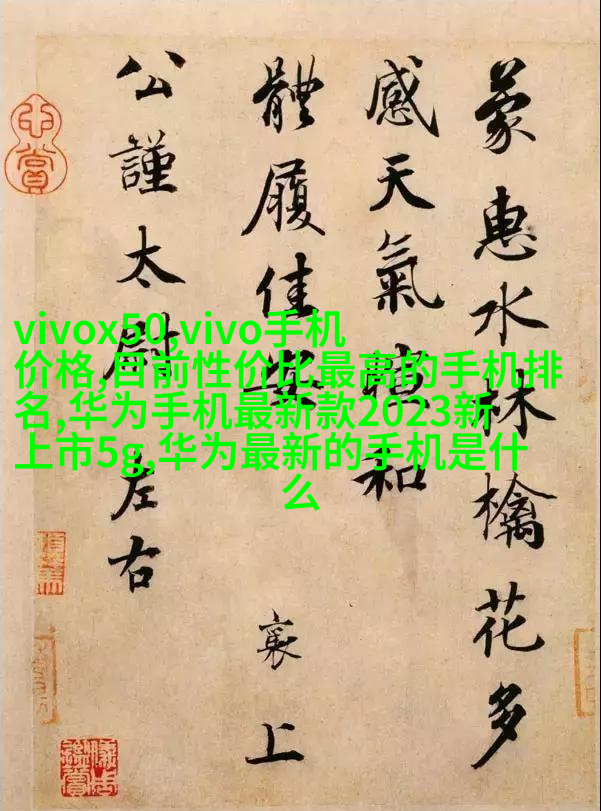 蒙惠水林檎花多
感天氣暄和
體履佳安
襄上
公謹太尉左右
vivox50,vivo手机
价格,目前性价比最高的手机排
名,华为手机最新款2023新
上市5g,华为最新的手机是什
么